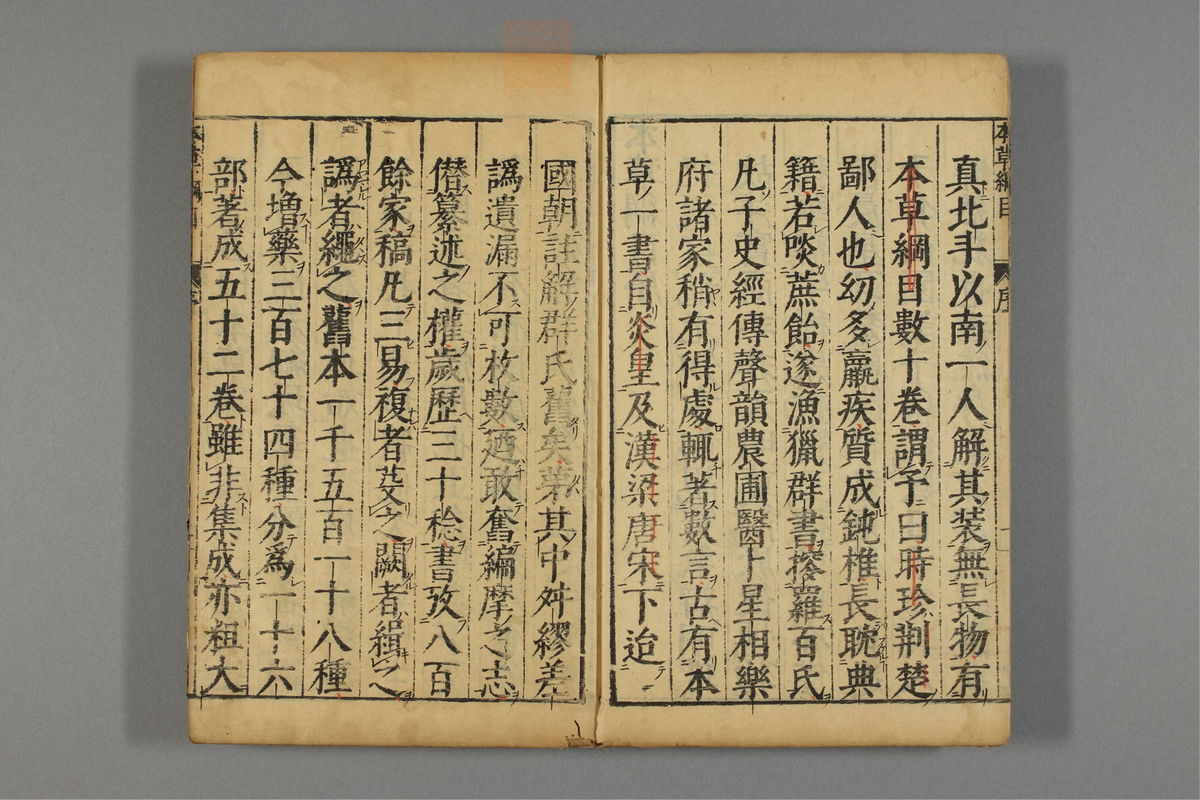 真北斗以南一人解其装無長物有
本草綱目數十卷謂予曰時珍荆楚
鄙人也幼多羸疾質成鈍椎長耽典
籍若啖蔗飴遂漁獵群書搜羅百氏
凡子史經傳聲韻農圃醫卜星相樂
府諸家稍有得處輒著數言古有本
草一書自炎皇及漢梁唐宋下迨
國朝註解群氏舊矣第其中舛繆差
譌遺漏不可枚數廼敢奮編摩之志
僣纂述之權歲歷三十稔書攷八百
餘家稿凡三易複者芟之闕者緝之
譌者繩之舊本一千五百一十八種
今増藥三百七十四種分爲一十六
部著成五十二卷雖非集成亦粗大